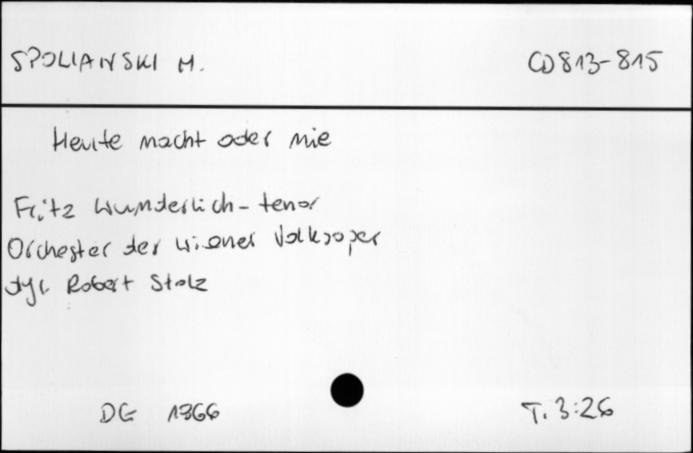 SPOLIANSKI M. CD 813-815
Heute nacht oder nie
Fritz Wunderlich - tenor
Orchester der Wiener Volksoper
dyr. Robert Stolz
DG 1966 T. 3:26